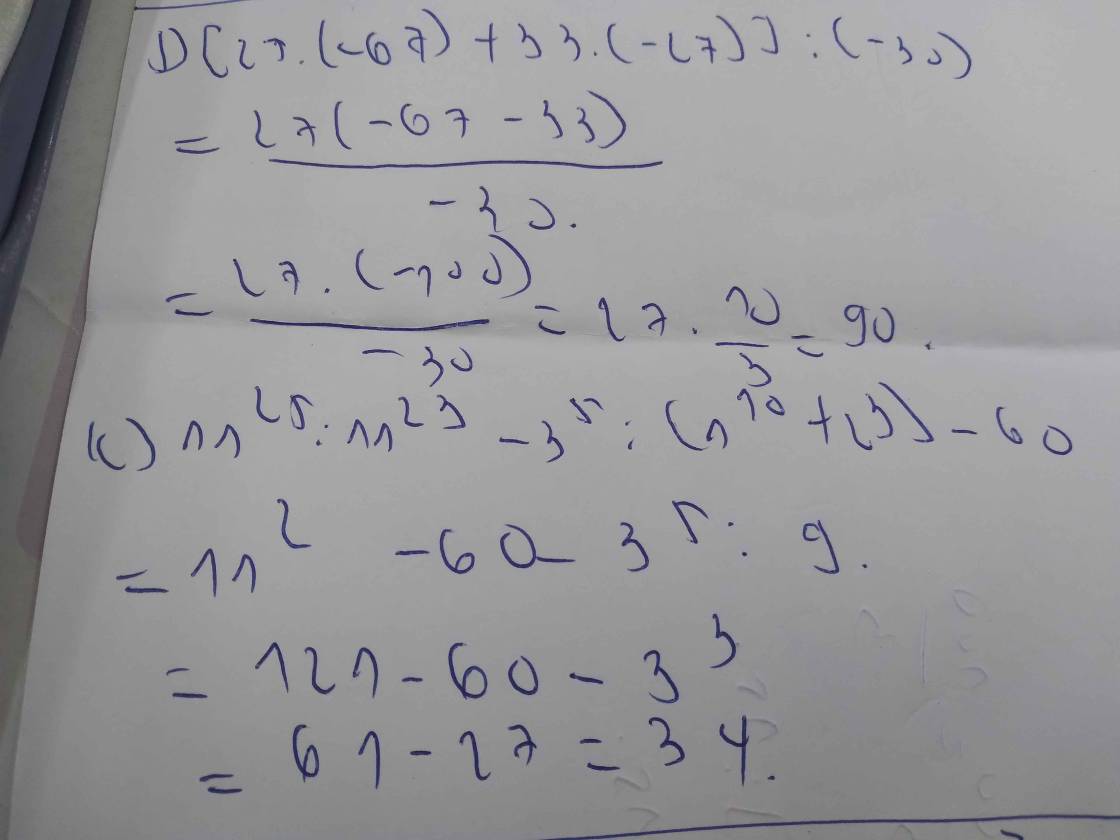 D [27.(-67) + 33.(-27)] : (-30)
= 27(-67 - 33)
-30.
= 27.(-100) / -30 = 27 . 10/3 = 90.
K) 11^25 : 11^23 - 3^5 : (1^10 + 2^3) - 60
= 11^2 - 60 - 3^5 : 9.
= 121 - 60 - 3^3
= 61 - 27 = 34.